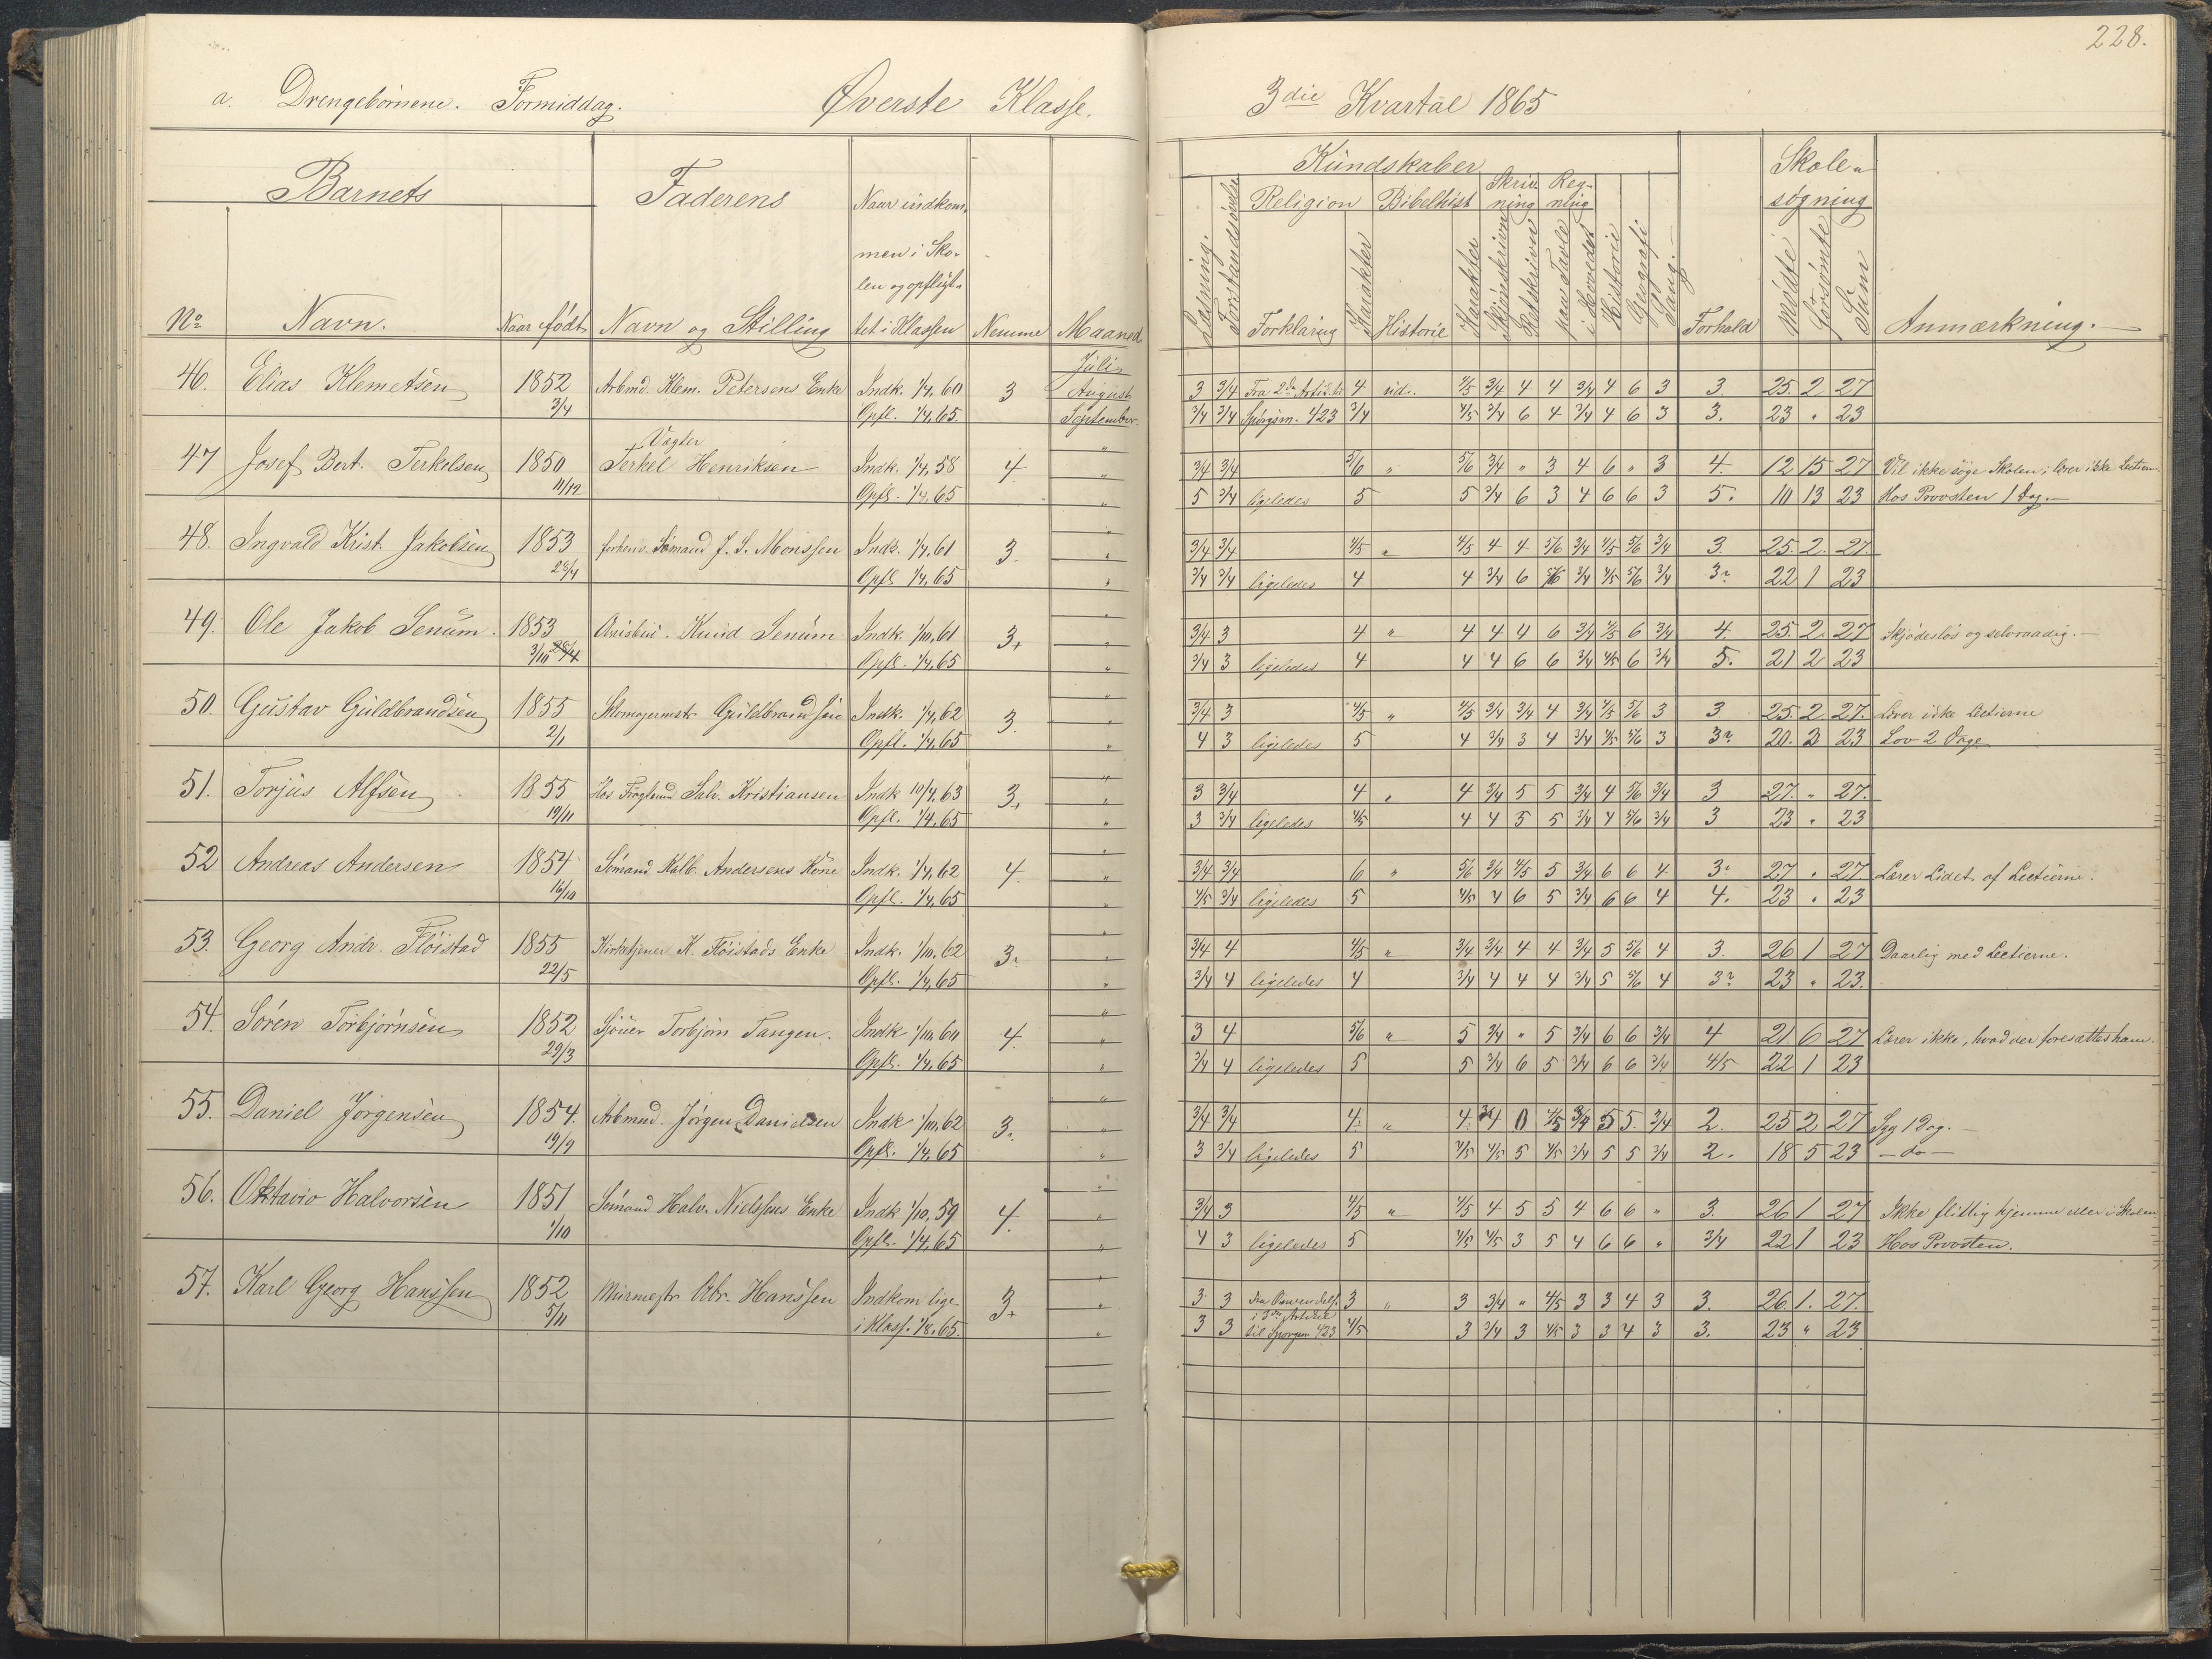 228.
a. Drengebörnene. Formiddag. Øverste Klasse. 3die Kvartal 1865
Barnets Faderens Naar indkom- Kundskaber Skole-
men i Sko- Religion Bibelhist Skriv- Reg- søgning
len og opflyt- ning ning
No Navn. Naar født Navn og Stilling tet i Klassen Nemme Maaned Læsning. Forstandsøvelse Forklaring Karakter Historie Karakter Skjönskrivn Retskrivn paa Tavle i Hovedet Historie Geografi Sang. Forhold mødte forsömte Sum Anmærkning.
Juli
46. Elias Klemetsen 1852 Arbmd. Klem. Petersens Enke Indk. 1/4, 60 3 August 3 3/4 Fra 2den Art. til 4 ud. 4/5 3/4 4 4 3/4 4 6 3 3. 25. 2 27
3/4 Opfl. 1/4, 65. September. 3/4 3/4 Spørgsm. 423 3/4 4/5 3/4 6 4 3/4 4 6 3 3. 23 " 23
47 Josef Bert. Terkelsen 1850 Vægter Terkel Henriksen Indk. 1/4, 58 4. " 3/4 3/4 5/6 " 5/6 3/4 " 3 4 6 " 3 4. 12 15 27 Vil ikke søge Skolen; lærer ikke Lectien.
11/12 Opfl. 1/4, 65 " 5 3/4 ligeledes 5 5 3/4 6 3 4 6 6 3 5. 10 13 23 Hos Provsten 1 Dag.
48. Ingvald Krist. Jakobsen 1853 forhenv. Sömand J. S. Monssen Indk. 1/4, 61 3. " 3/4 3/4 4/5 " 4/5 4 4 5/6 3/4 4/5 5/6 3/4 3. 25. 2. 27.
28/4 Opfl 1/4, 65 " 3/4 3/4 ligeledes 4 4 3/4 6 5/6 3/4 4/5 5/6 3/4 3? 22 1 23
49. Ole Jakob Senum. 1853 Knud Senum Indk. 1/10, 61 3+ " 3/4 3 4 " 4 4 4 6 3/4 4/5 6 3/4 4. 25. 2. 27 Skjödeslös og selvraadig.
3/10 28/4 Opfl. 1/4, 65 " 3/4 3 ligeledes 4 4 4 6 6 3/4 4/5 6 3/4 5. 21 2 23
50. Gustav Guldbrandsen 1855 Skomagermstr Guldbrandsen Indk. 1/4, 62 3. " 3/4 3 4/5 " 4/5 3/4 3/4 4 3/4 4/5 5/6 3 3 25. 2. 27. Lærer ikke Lectierne
2/1 Opfl. 1/4, 65 " 4 3 ligeledes 5 4 3/4 3 4 3/4 4/5 5/6 3 3? 20. 3 23 Lov 2 Dage
51. Torjus Alfsen 1855 Hos Salv. Kristiansen Indk 10/4, 63 3+ " 3 3/4 4 " 4 3/4 5 5 3/4 4 5/6 3/4 3 27. " 27.
19/11 Opfl. 1/4, 65 " 3 3/4 ligeledes 4/5 4 4 5 5 3/4 4 5/6 3/4 3 23 " 23
52 Andreas Andersen 1854 Sömand Kalb. Andersens Kone Indk. 1/4, 62 4. " 3/4 3/4 6 " 5/6 3/4 4/5 5 3/4 6 6 4 3? 27 " 27 Lærer Lidet af Lectierne.
16/10 Opfl. 1/4, 65 " 4/5 3/4 ligeledes 5 4/5 4 6 5 3/4 6 6 4 4. 23 " 23
53. Georg Andr. Flöistad 1855 Kirketjener K. Flöistads Enke Indk. 1/10, 62 3? " 3/4 4 4/5 " 3/4 3/4 4 4 3/4 5 5/6 4 3. 26 1 27 Daarlig med Lectierne.
22/5 Opfl. 1/4, 65 " 3/4 4 ligeledes 4 3/4 4 4 4 3/4 5 5/6 4 3? 23 " 23.
54. Sören Torbjörnsen 1852 Torbjörn Tangen. Indk 1/10, 60 4. " 3 4 5/6 " 5 3/4 " 5 3/4 6 6 3/4 4 21 6 27 Lærer ikke, hvad der foresættes ham.
29/3 Opfl. 1/4, 65 " 3/4 4 ligeledes 5 5 3/4 6 5 3/4 6 6 3/4 4/5 22 1 23
55. Daniel Jörgensen 1854. Arbmnd. Jörgen Danielsen Indk 1/10, 62 3. " 3/4 3/4 4. " 4. 3/4 0 4/5 3/4 5 5. 3/4 2. 25 2 27 Syg 1 Dag.
19/9 Opfl. 1/4, 65 " 3 3/4 ligeledes 5 4/5 4/5 5 4/5 3/4 5 5 3/4 2. 18 5 23 – do –
56. Oktavio Halvorsen 1851 Sömand Halv. Nielssens Enke Indk 1/10, 59 4. " 3/4 3 4/5 " 4/5 4 5 5 4 6 6 " 3. 26 1 27 Ikke flittig hjemme eller i Skolen
1/10 Opfl. 1/4, 65 " 4 3 ligeledes 5 4/5 4/5 3 5 4 6 6 " 3/4 22 1 23 Hos Provsten.
57. Karl Georg Hanssen 1852 Murmestr Abr. Hanssen Indkom lige 3+ " 3 3 3 " 3 3/4 " 4/5 3 3 4 3 3. 26. 1. 27.
5/11 i Klass. 1/8, 65. " 3 3 i 3die Artikel til Spørgsm 423 4/5 3 3/4 3 4/5 3 3 4 3 3. 23 " 23